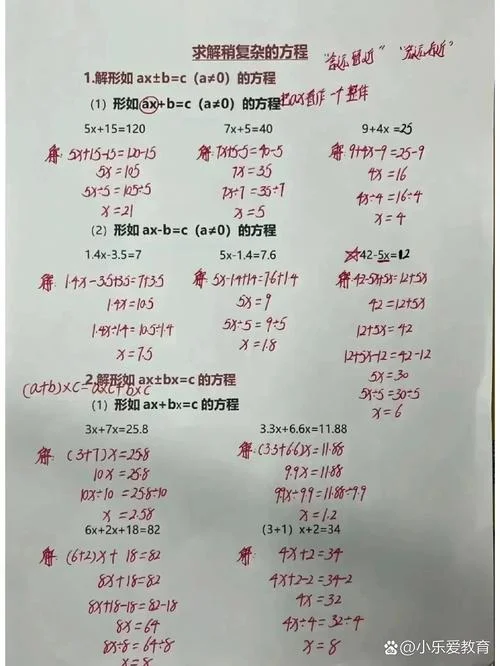 求解稍复杂的方程
1.解形如 ax±b=c（a≠0）的方程
（1）形如 ax+b=c（a≠0）的方程 把ax看作一个整体
5x+15=120 7x+5=40 9+4x=25
解：5x+15-15=120-15 解：7x+5-5=40-5 解：9+4x-9=25-9
5x=105 7x=35 4x=16
5x÷5=105÷5 7x÷7=35÷7 4x÷4=16÷4
x=21 x=5 x=4
（2）形如 ax-b=c（a≠0）的方程
1.4x-3.5=7 5x-1.4=7.6 ☆42-5x=12
解：1.4x-3.5+3.5=7+3.5 解：5x-1.4+1.4=7.6+1.4 解：42-5x+5x=12+5x
1.4x=10.5 5x=9 42=12+5x
1.4x÷1.4=10.5÷1.4 5x÷5=9÷5 12+5x=42
x=7.5 x=1.8 12+5x-12=42-12
5x=30
5x÷5=30÷5
x=6
2.解形如 ax±bx=c 的方程
(a+b)×c=a×c+b×c
（1）形如 ax+bx=c 的方程
3x+7x=25.8 3.3x+6.6x=11.88
解：(3+7)x=25.8 解：(3.3+6.6)x=11.88
10x=25.8 9.9x=11.88
10x÷10=25.8÷10 9.9x÷9.9=11.88÷9.9
x=2.58 x=1.2
6x+2x+18=82 (3+1) x+2=34
解：(6+2)x+18=82 解：4x+2=34
8x+18=82 4x+2-2=34-2
8x+18-18=82-18 4x=32
8x=64 4x÷4=32÷4
8x÷8=64÷8 x=8
x=8
@小乐爱教育